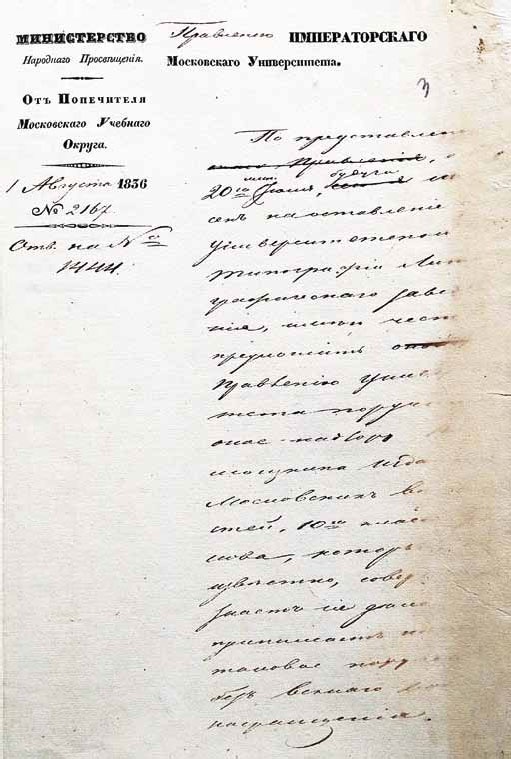 МИНИСТЕРСТВО
Народнаго Просвѣщенія.
Отъ Попечителя
Московскаго Учебнаго
Округа.
1 Августа 1836
№ 2167.
Отв. на №
1444.
Правленію ИМПЕРАТОРСКАГО
Московскаго Университета.
3
По представлен
Правленія,
мин. будучи
20го Іюля,
сен на оставленіе
Университетской
Типографіи Лит
графическаго Заве
нія, имѣю чест
предложить
Правленію Униве
тета поруч
онас надзору
мощника Реда
Московскихъ Вѣ
стей, 10го клас
нова, котор
извѣстно, совер
знаетъ
принимаетъ на
таковое поруч
безъ всякаго
награжденія.